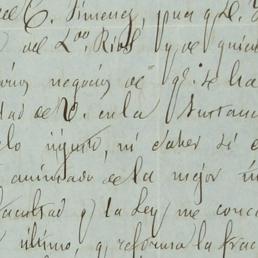 C. Jimenez, para q. e.
del Ldo. Rios y de quien
negocios de q. se ha
de V. en la Sustanc
lo injusto, ni saber si e
animado de la mejor in
facultad q. la Ley me conce
último, q. reforma la frac